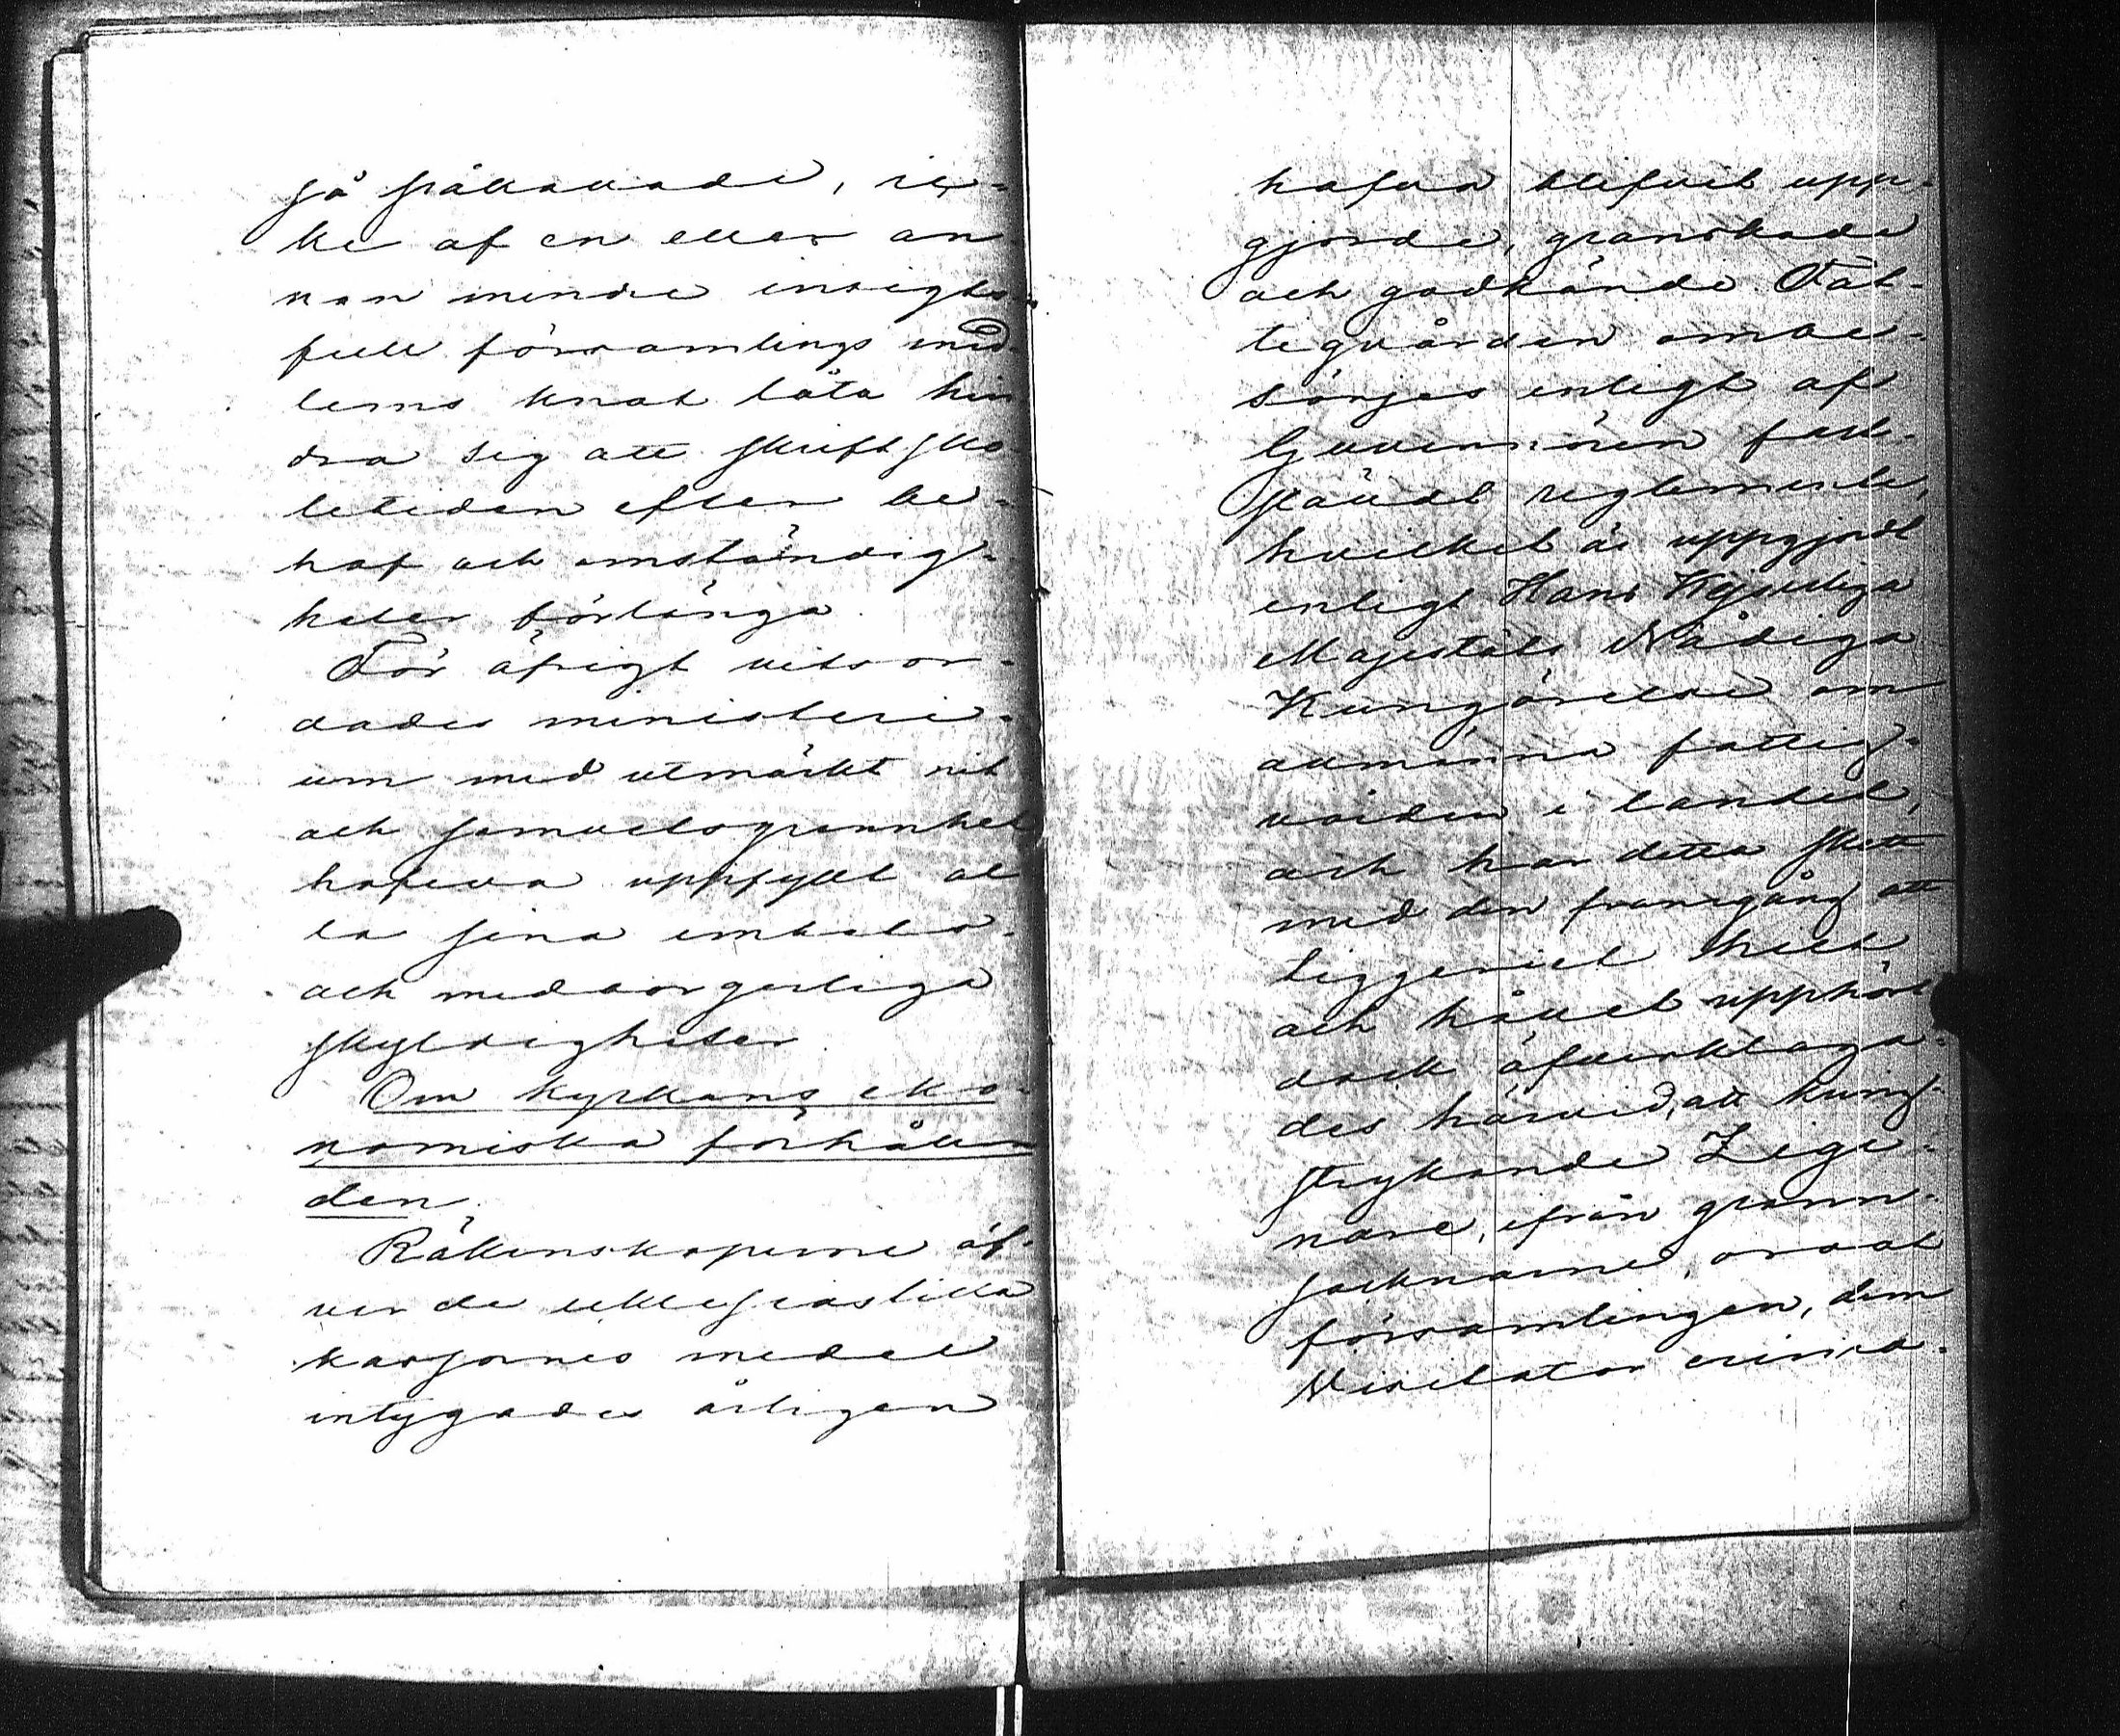 så påkallade, ic-
ke af en eller an
nan mindre insigts
full församlings med
lems knot låta hin
dra sig att skriftsko
letiden efter be-
hof och omständig-
heter förlänga.
För öfrigt vitsor-
dades ministeri-
um med utmärkt nit
och samvetsgrannhet
hafva uppfyllt al
la sina embets-
och medborgerliga
skyldigheter.
Om kyrkans eko-
nomiska förhållan
den.
Räkenskaperne öf-
ver de ecklesiastika
kassornes medel
intygades årligen
hafva blifvit upp-
gjorde, granskade
och godkände. Fat-
tigvården ombe-
sörjes enligt af
Guvernören fast-
stäldt reglemente,
hvilket är uppgjordt
enligt Hans Kejserliga
Majestäts Nådiga
Kungörelse om
allmänna fattig-
vården i landet,
och har detta skett
med den framgång att
tiggeriet helt
och hållet upphört
dock öfverklaga-
des härvid, att kring-
strykande Zige-
nare, ifrån grann-
socknarne, oroat
församlingen, dem
Visitator erinra-